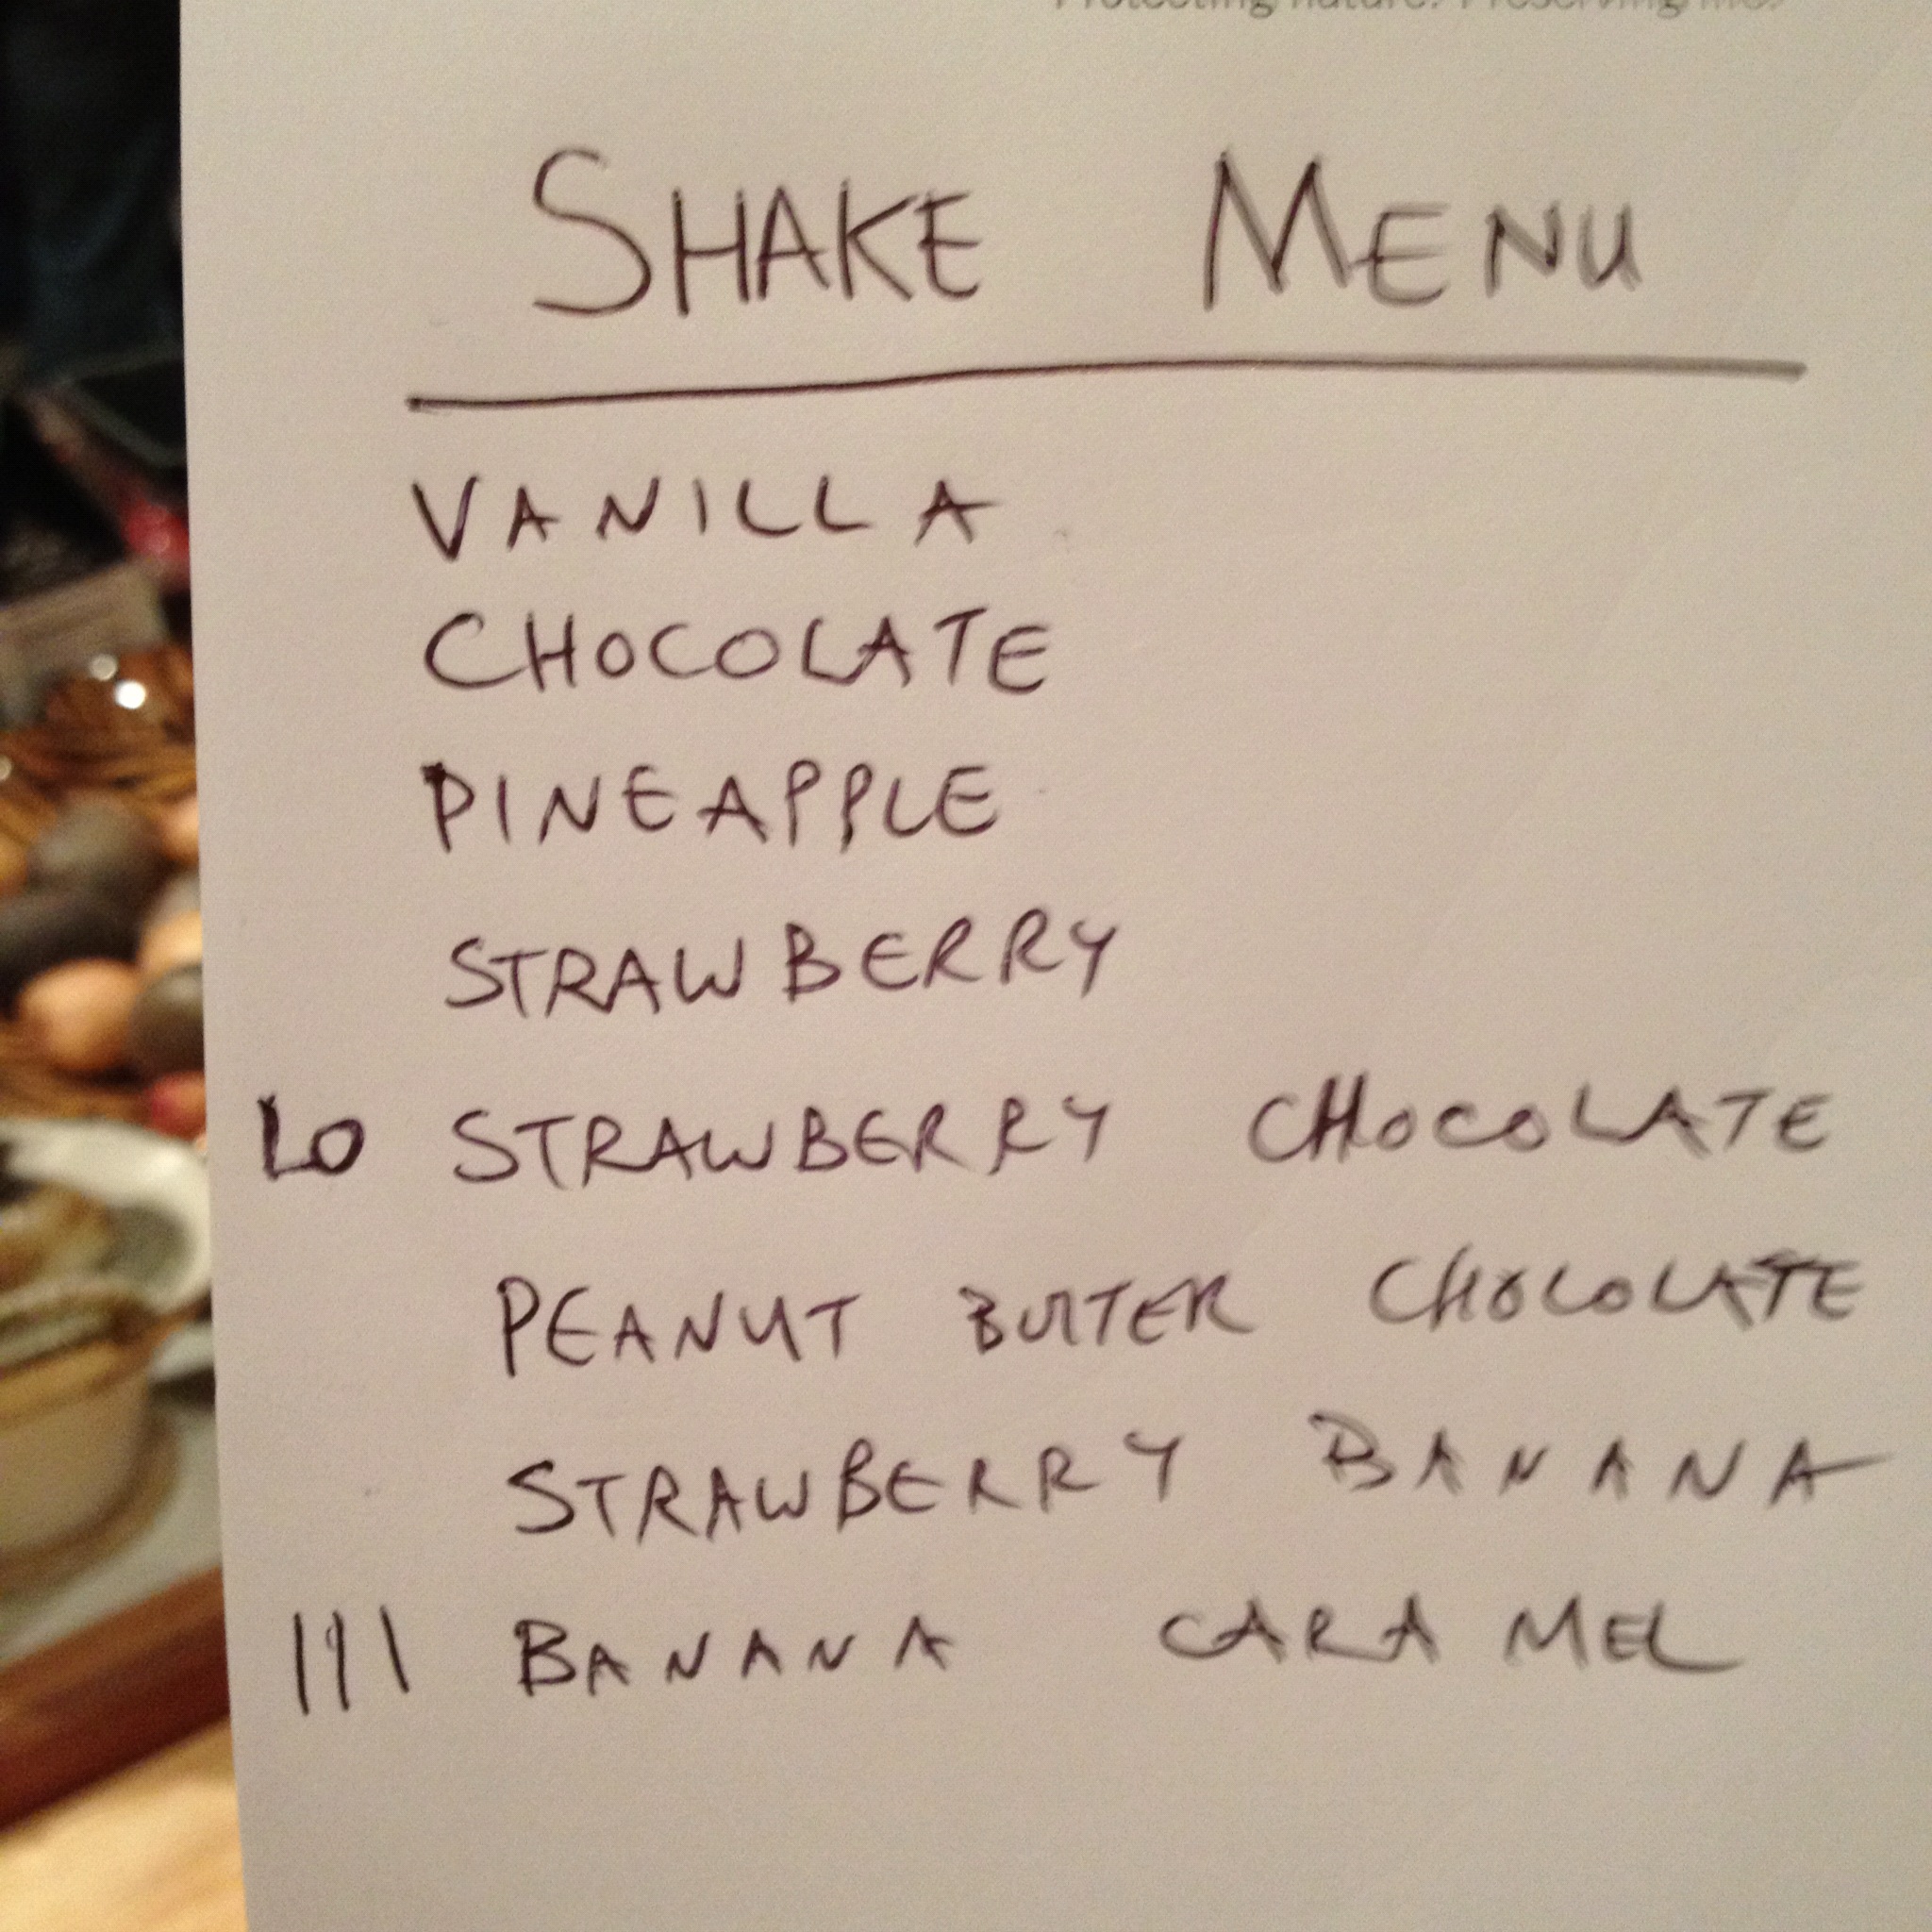 Protecting nature. Preserving life.
SHAKE MENU
VANILLA
CHOCOLATE
PINEAPPLE
STRAWBERRY
LO STRAWBERRY CHOCOLATE
PEANUT BUTTER CHOCOLATE
STRAWBERRY BANANA
||| BANANA CARAMEL